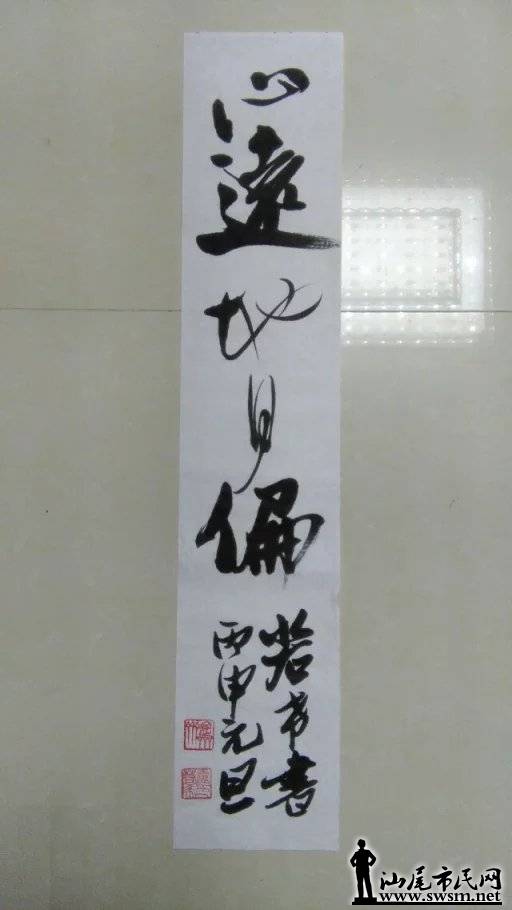 心遠地自偏
書
丙申元旦
汕尾市民网
www.swsm.net